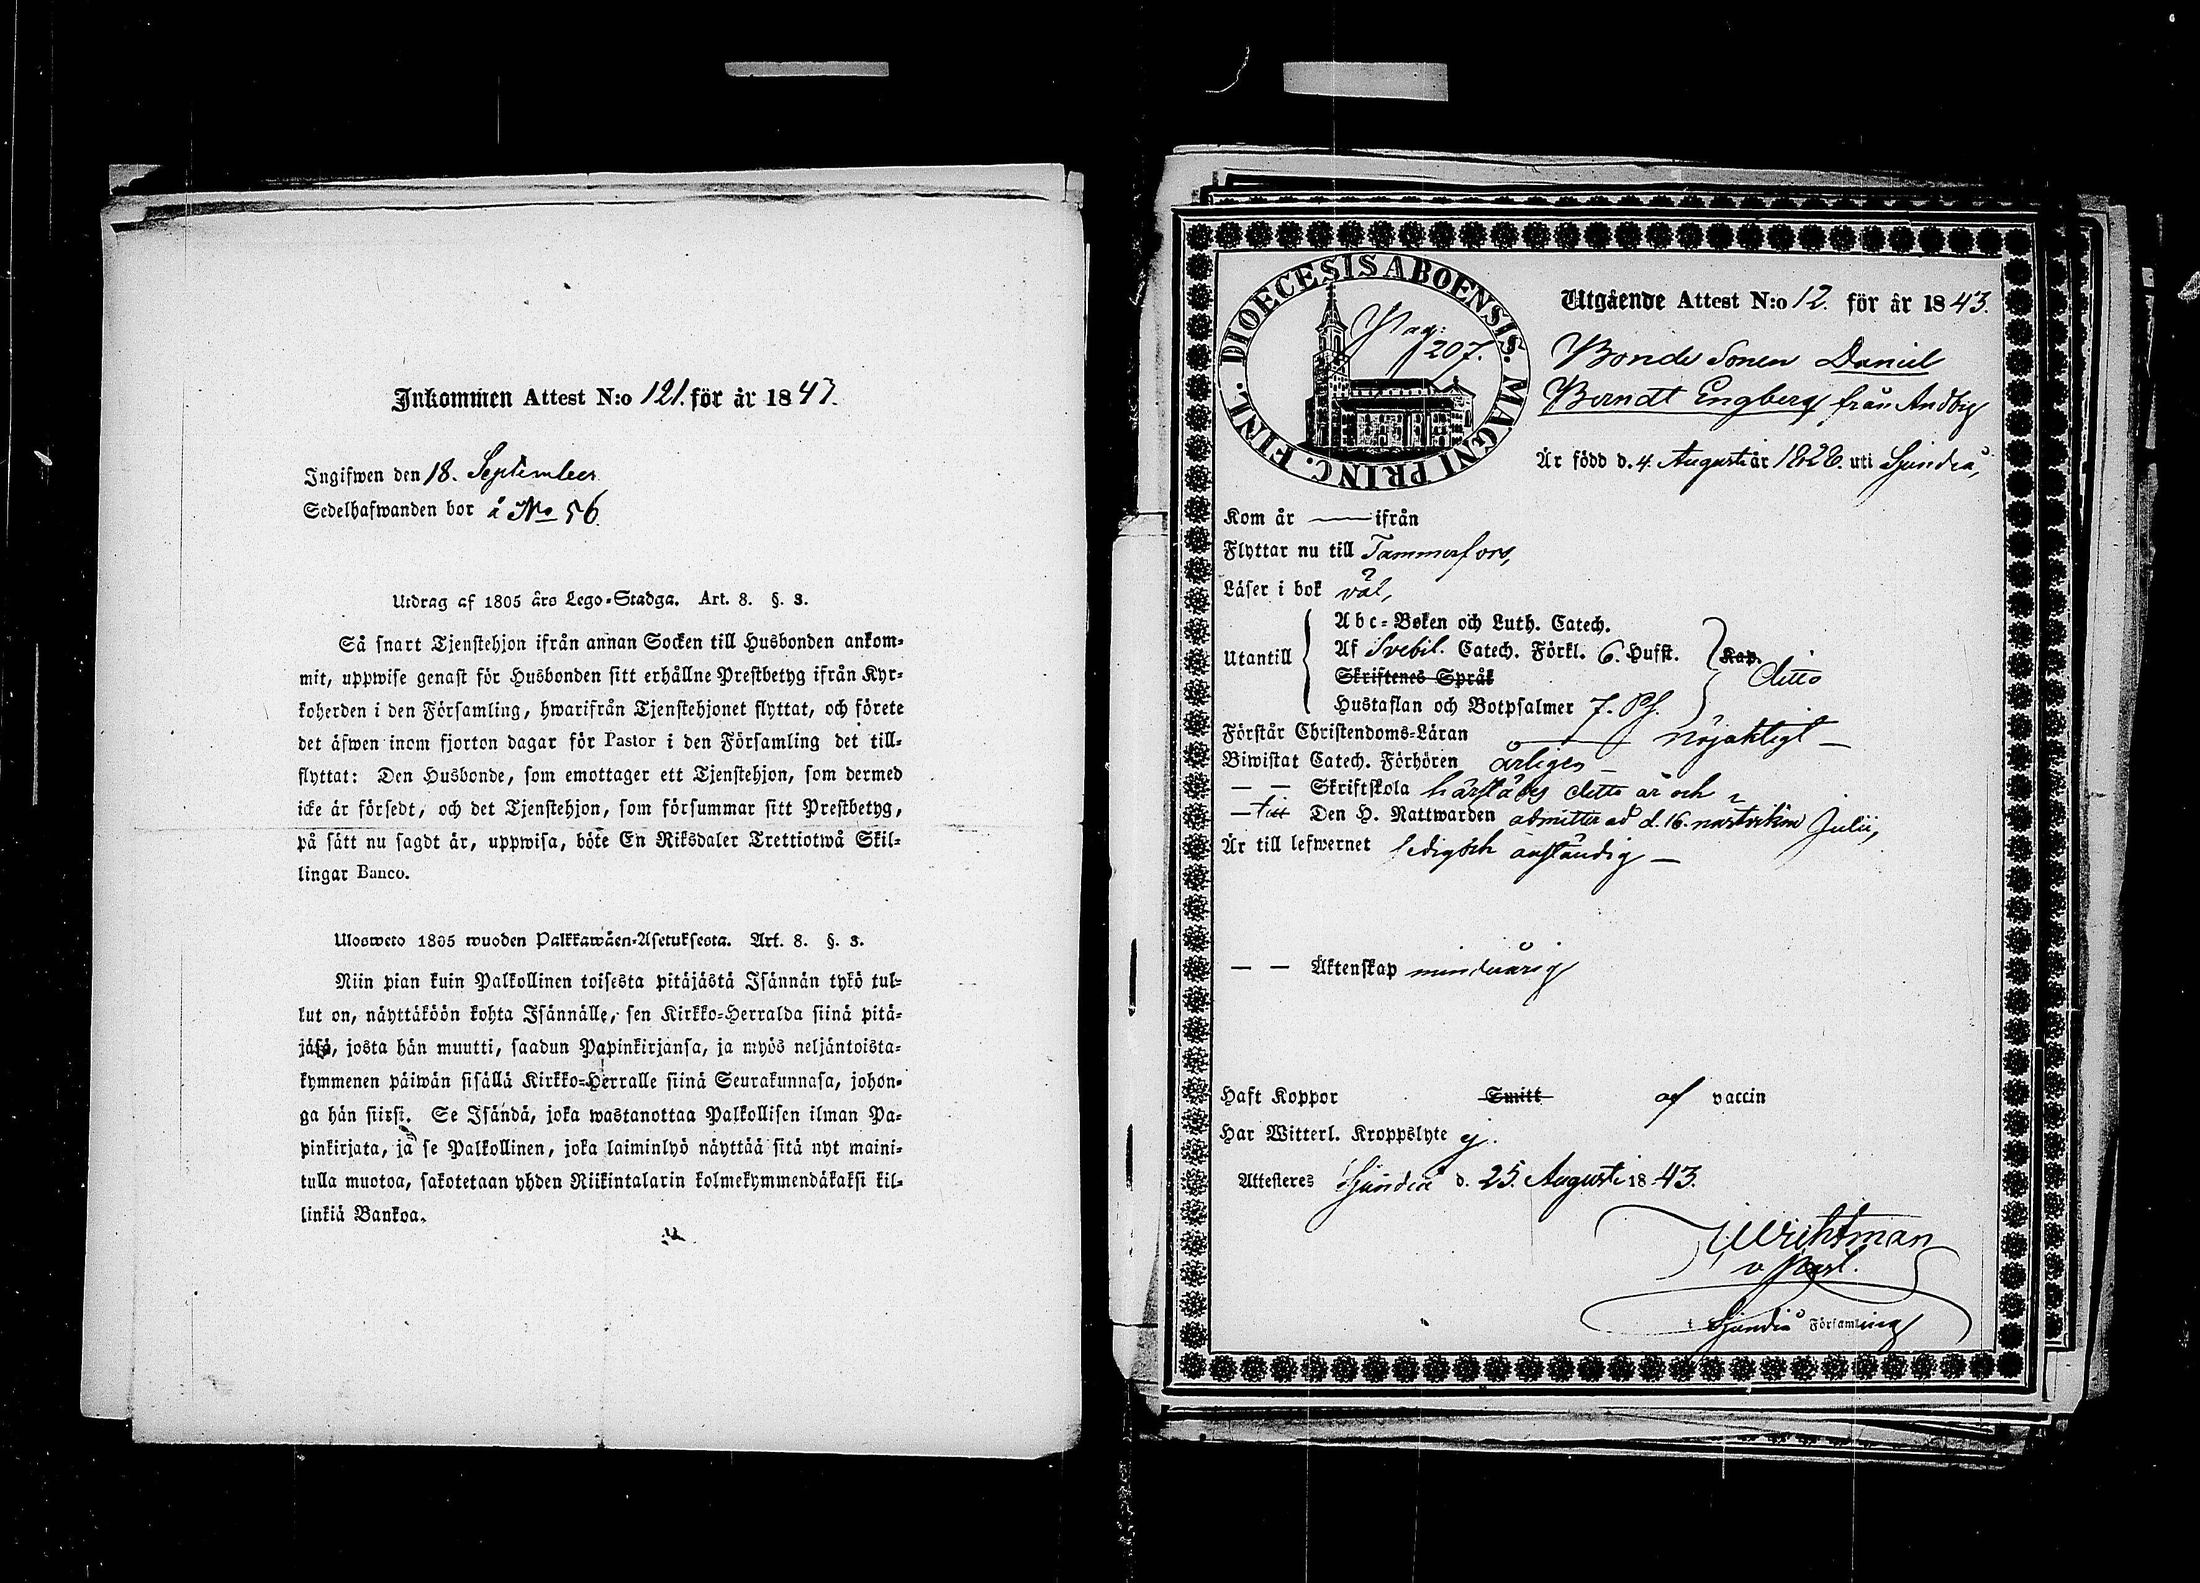 Inkommen Attest N:o 121. för år 1843.
Ingifwen den 18. September
Sedelhafwanden bor å No 56
Utdrag af 1805 års Lego-Stadga. Art. 8. §. 3.
Så snart Tjenstehjon ifrån annan Socken till Husbonden ankom-
mit, uppwise genast för Husbonden sitt erhållne Prestbetyg ifrån Kyr-
koherden i den Församling, hwarifrån Tjenstehjonet flyttat, och förete
det äfwen inom fjorton dagar för Pastor i den Församling det till-
flyttat: Den Husbonde, som emottager ett Tjenstehjon, som dermed
icke är försedt, och det Tjenstehjon, som försummar sitt Prestbetyg,
på sätt nu sagdt är, uppwisa, böte En Riksdaler Trettiotwå Skil-
lingar Banco.
Ulosweto 1805 wuoden Palkkawäen-Asetuksesta. Art. 8. §. 3.
Niin pian kuin Palkollinen toisesta pitäjästä Isännän tykö tul-
lut on, näyttäköön kohta Isännälle, sen Kirkko-Herralda siinä pitä-
jäsä, josta hän muutti, saadun Papinkirjansa, ja myös neljäntoista-
kymmenen päiwän sisällä Kirkko-Herralle siinä Seurakunnasa, johon-
ga hän siirsi. Se Isändä, joka wastanottaa Palkollisen ilman Pa-
pinkirjata, ja se Palkollinen, joka laiminlyö näyttää sitä nyt maini-
tulla muotoa, sakotetaan yhden Riikintalarin kolmekymmendäkaksi kil-
linkiä Bankoa.
DIOECESIS ABOENSIS. MAGNI PRINC. FINL.
Pag: 207.
Utgående Attest N:o 12. för år 1843.
Bonde Sonen Daniel
Berndt Engberg från Andby
Är född d. 4. Augusti år 1826. uti Sjundeå,
Kom år — ifrån
Flyttar nu till Tammerfors,
Läser i bok väl,
Utantill
Abc-Boken och Luth. Catech.
Af Svebil. Catech. Förkl. 6. Hufst. Kap.
Skriftenes Språk
ditto
Hustaflan och Botpsalmer 7. Ps.
Förstår Christendoms-Läran nöjaktigt —
Biwistat Catech. Förhören årligen —
— — Skriftskola härstädes detta år och
— till Den H. Nattwarden admitterad d. 16. nästvikne Julii,
Är till lefwernet ledig och anständig —
— — Äktenskap minderårig
Haft Koppor Smitt af vaccin
Har Witterl. Kroppslyte ej.
Attesteres Sjundeå d. 25. Augusti 1843.
Wichtman
v. Past.
i Sjundeå Församling